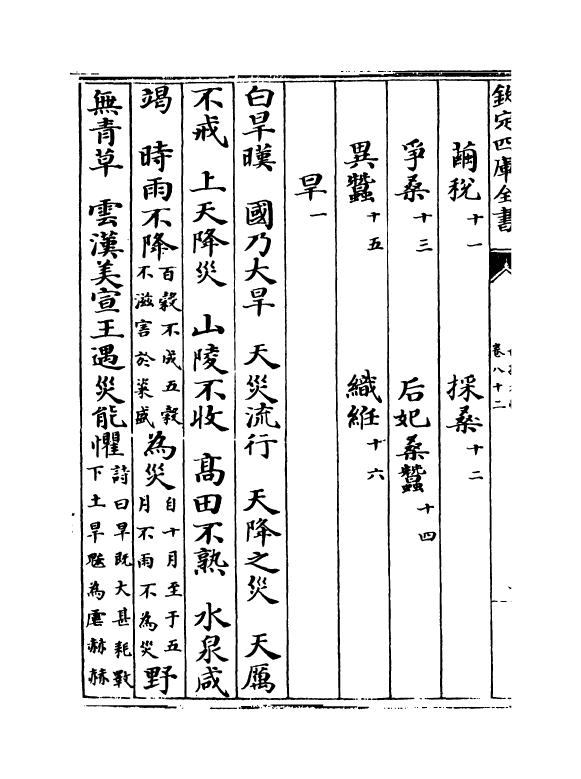 欽定四庫全書
卷八十二
繭稅十一 採桑十二
爭桑十三 后妃桑蠶十四
異蠶十五 織絍十六
旱一
白旱暵 國乃大旱 天災流行 天降之災 天厲
不戒 上天降災 山陵不收 髙田不熟 水泉咸
竭 時雨不降百穀不成五穀不滋害於粢盛為災自十月至于五月不雨不為災野
無青草 雲漢美宣王遇災能懼詩曰旱既大甚耗斁下土旱魃為虐赫赫